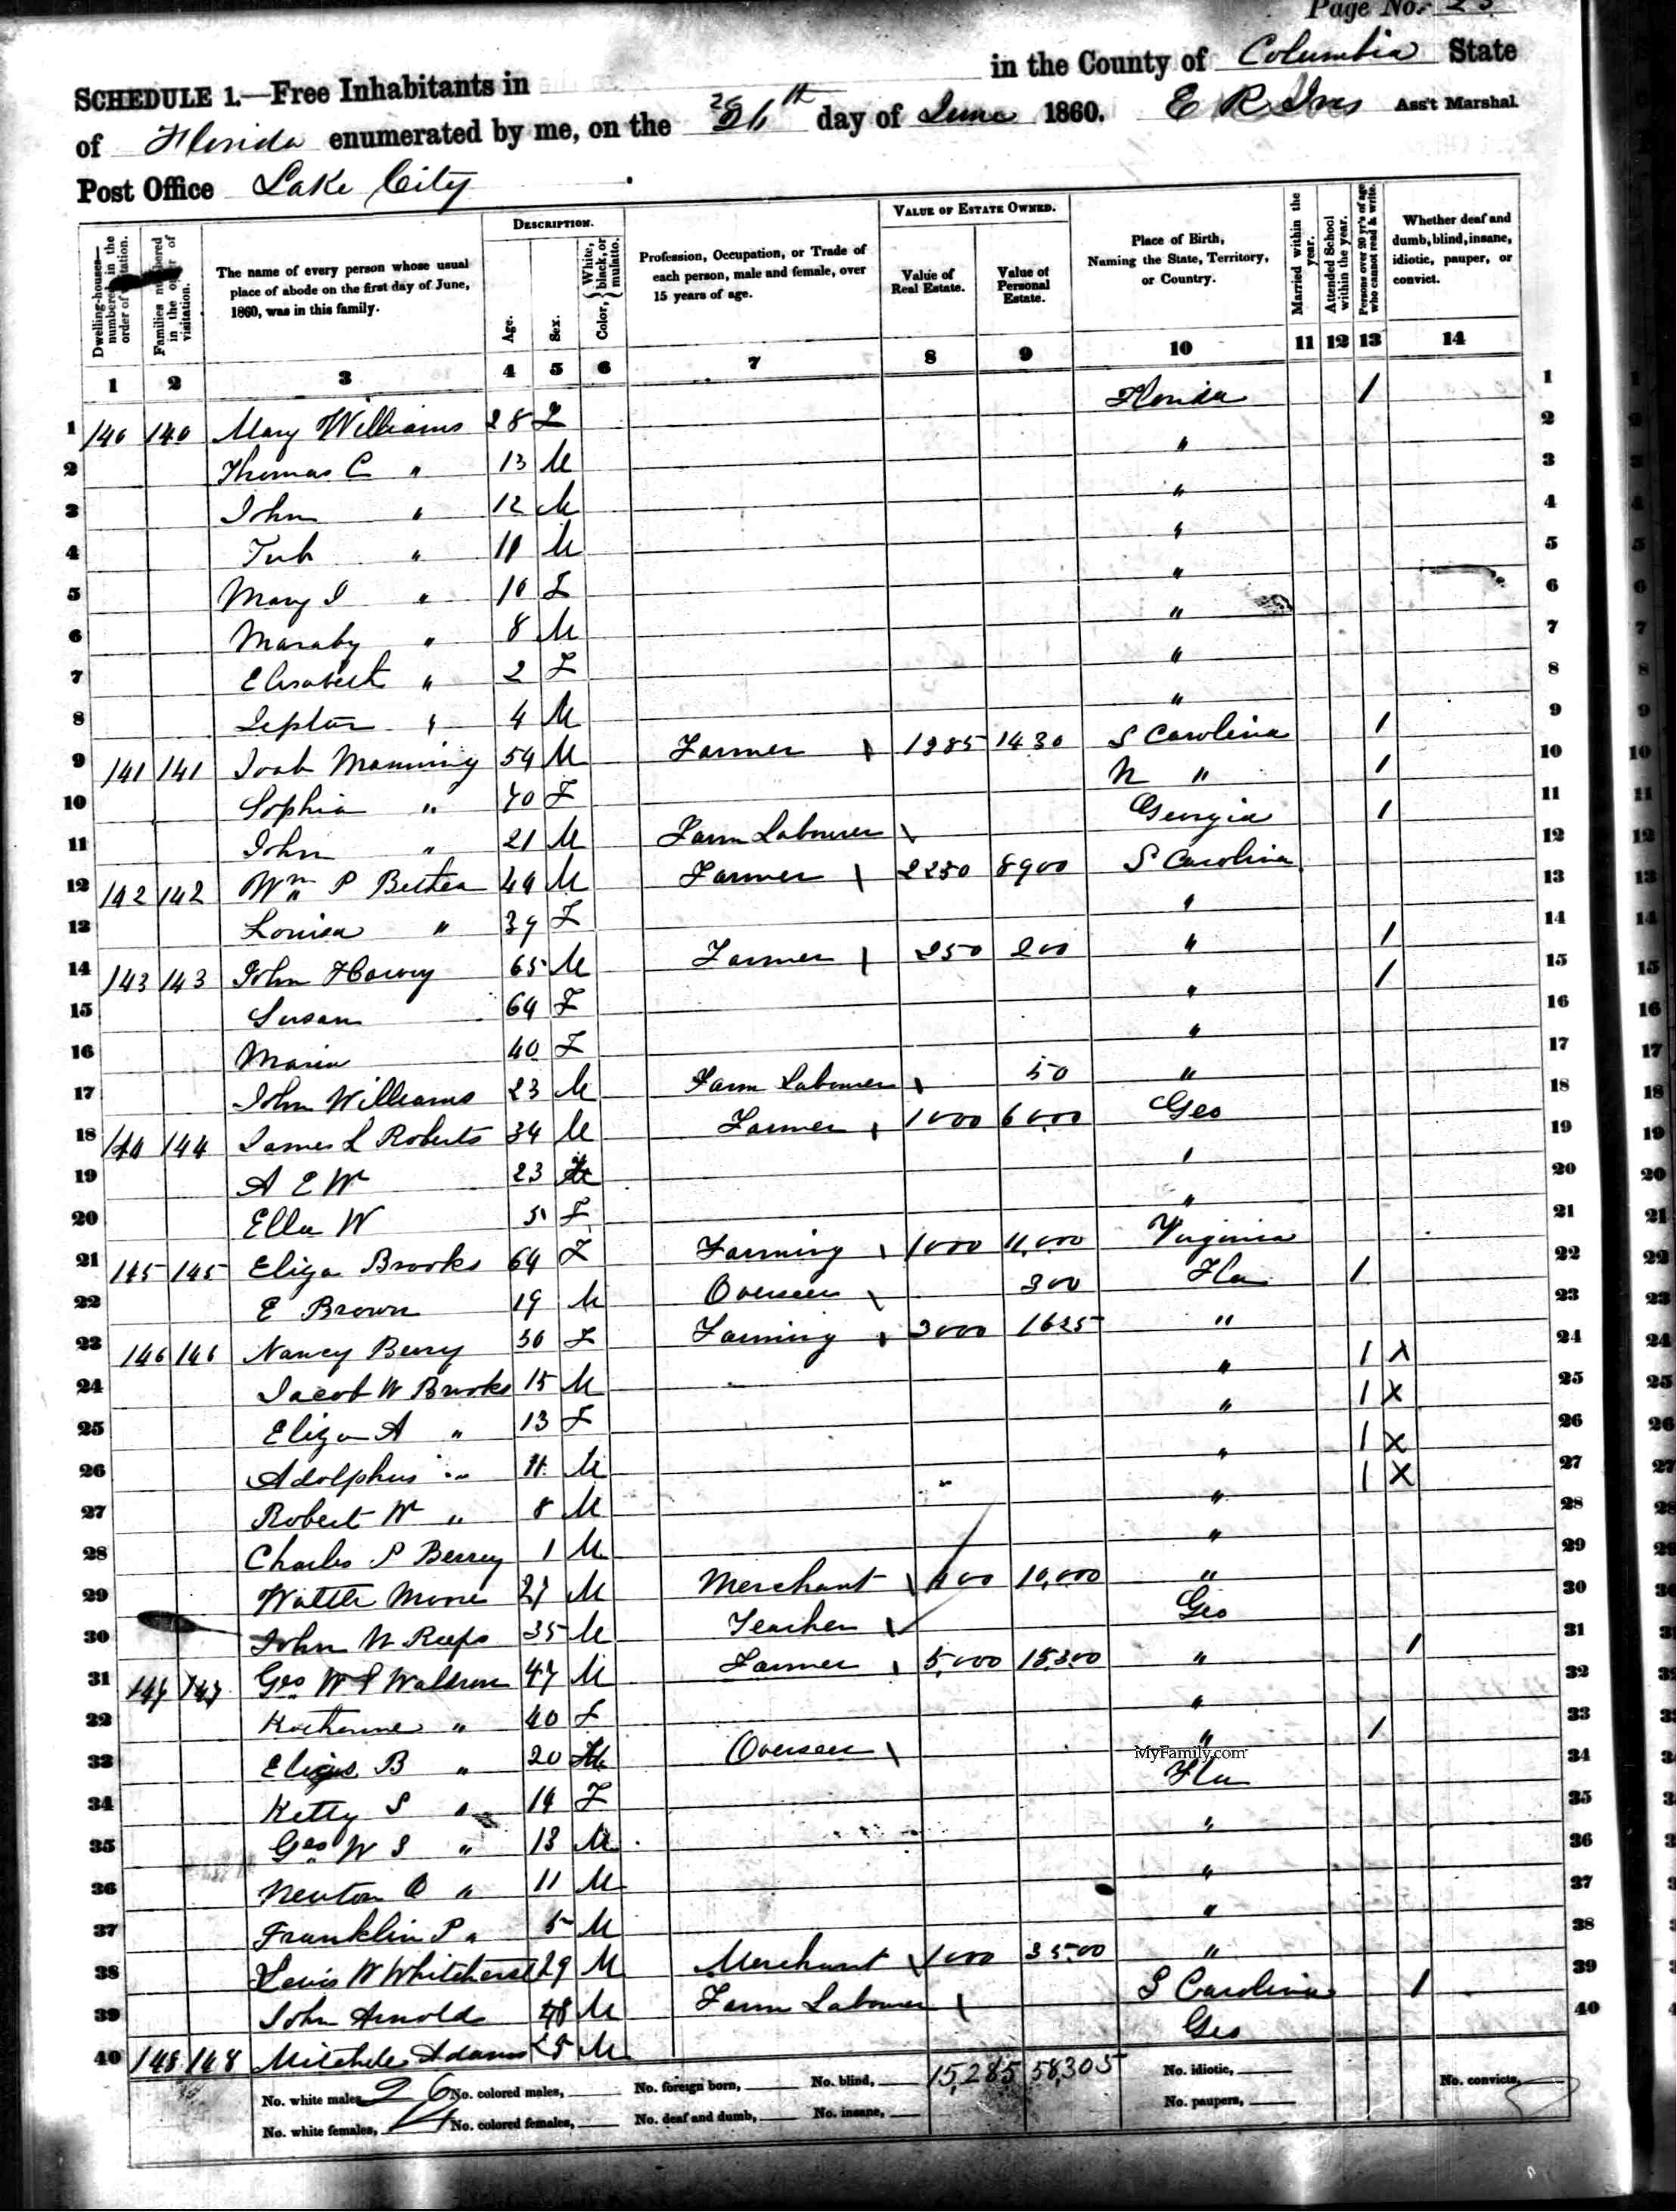 Page No. 23
SCHEDULE 1.—Free Inhabitants in in the County of Columbia State
of Florida enumerated by me, on the 26th day of June 1860. E R Ives Ass't Marshal.
Post Office Lake City
Dwelling-houses—numbered in the order of visitation. Families numbered in the order of visitation. The name of every person whose usual place of abode on the first day of June, 1860, was in this family. DESCRIPTION. Age. Sex. Color, {White, black, or mulatto. Profession, Occupation, or Trade of each person, male and female, over 15 years of age. VALUE OF ESTATE OWNED. Value of Real Estate. Value of Personal Estate. Place of Birth, Naming the State, Territory, or Country. Married within the year. Attended School within the year. Persons over 20 yr's of age who cannot read & write. Whether deaf and dumb, blind, insane, idiotic, pauper, or convict.
1 2 3 4 5 6 7 8 9 10 11 12 13 14
1 140 140 Mary Williams 28 F Florida / 1
2 Thomas C " 13 M " 2
3 John " 12 M " 3
4 " 11 M " 4
5 Mary J " 10 F " 5
6 " 8 M " 6
7 Elisabeth " 2 F " 7
8 " 4 M " 8
9 141 141 Joab Manning 54 M Farmer 1285 1430 S Carolina / 9
10 Sophia " 40 F N " / 10
11 John " 21 M Farm Labourer Georgia / 11
12 142 142 Wm P Bethea 49 M Farmer 2250 8900 S Carolina 12
13 Louisa " 39 F " 13
14 143 143 John Harvey 65 M Farmer 250 200 " / 14
15 Susan 64 F " / 15
16 Maria 40 F " 16
17 John Williams 23 M Farm Labourer 50 " 17
18 144 144 James L Roberts 34 M Farmer 1000 6000 Geo 18
19 A E W 23 F " 19
20 Ella W 5 F " 20
21 145 145 Eliza Brooks 64 F Farming 1000 11,000 Virginia 21
22 E Brown 19 M Overseer 300 Fla / 22
23 146 146 Nancy Berry 30 F Farming 3000 1625 " 23
24 Jacob W Brooks 15 M " 1 X 24
25 Eliza A " 13 F " 1 X 25
26 Adolphus " 11 M " 1 X 26
27 Robert W " 8 M " 1 X 27
28 Charles P Berrey 1 M " 28
29 Moore 27 M Merchant 10,000 " 29
30 John W 35 M Teacher Geo 30
31 147 147 Geo W S Waldron 47 M Farmer 5,000 15,300 " / 31
32 Katherine " 40 F " 32
33 B " 20 M Overseer " / 33
34 Ketty S " 14 F Fla 34
35 Geo W S " 13 M " 35
36 Newton O " 11 M " 36
37 Franklin P " 5 M " 37
38 Lewis W Whitehurst 29 M Merchant 1000 3500 " 38
39 John Arnold 48 M Farm Labourer S Carolina / 39
40 148 148 Adams 25 M Geo 40
MyFamily.com
No. white males, 26 No. colored males, No. foreign born, No. blind, 15,285 58,305 No. idiotic, No. convicts,
No. white females, 14 No. colored females, No. deaf and dumb, No. insane, No. paupers,